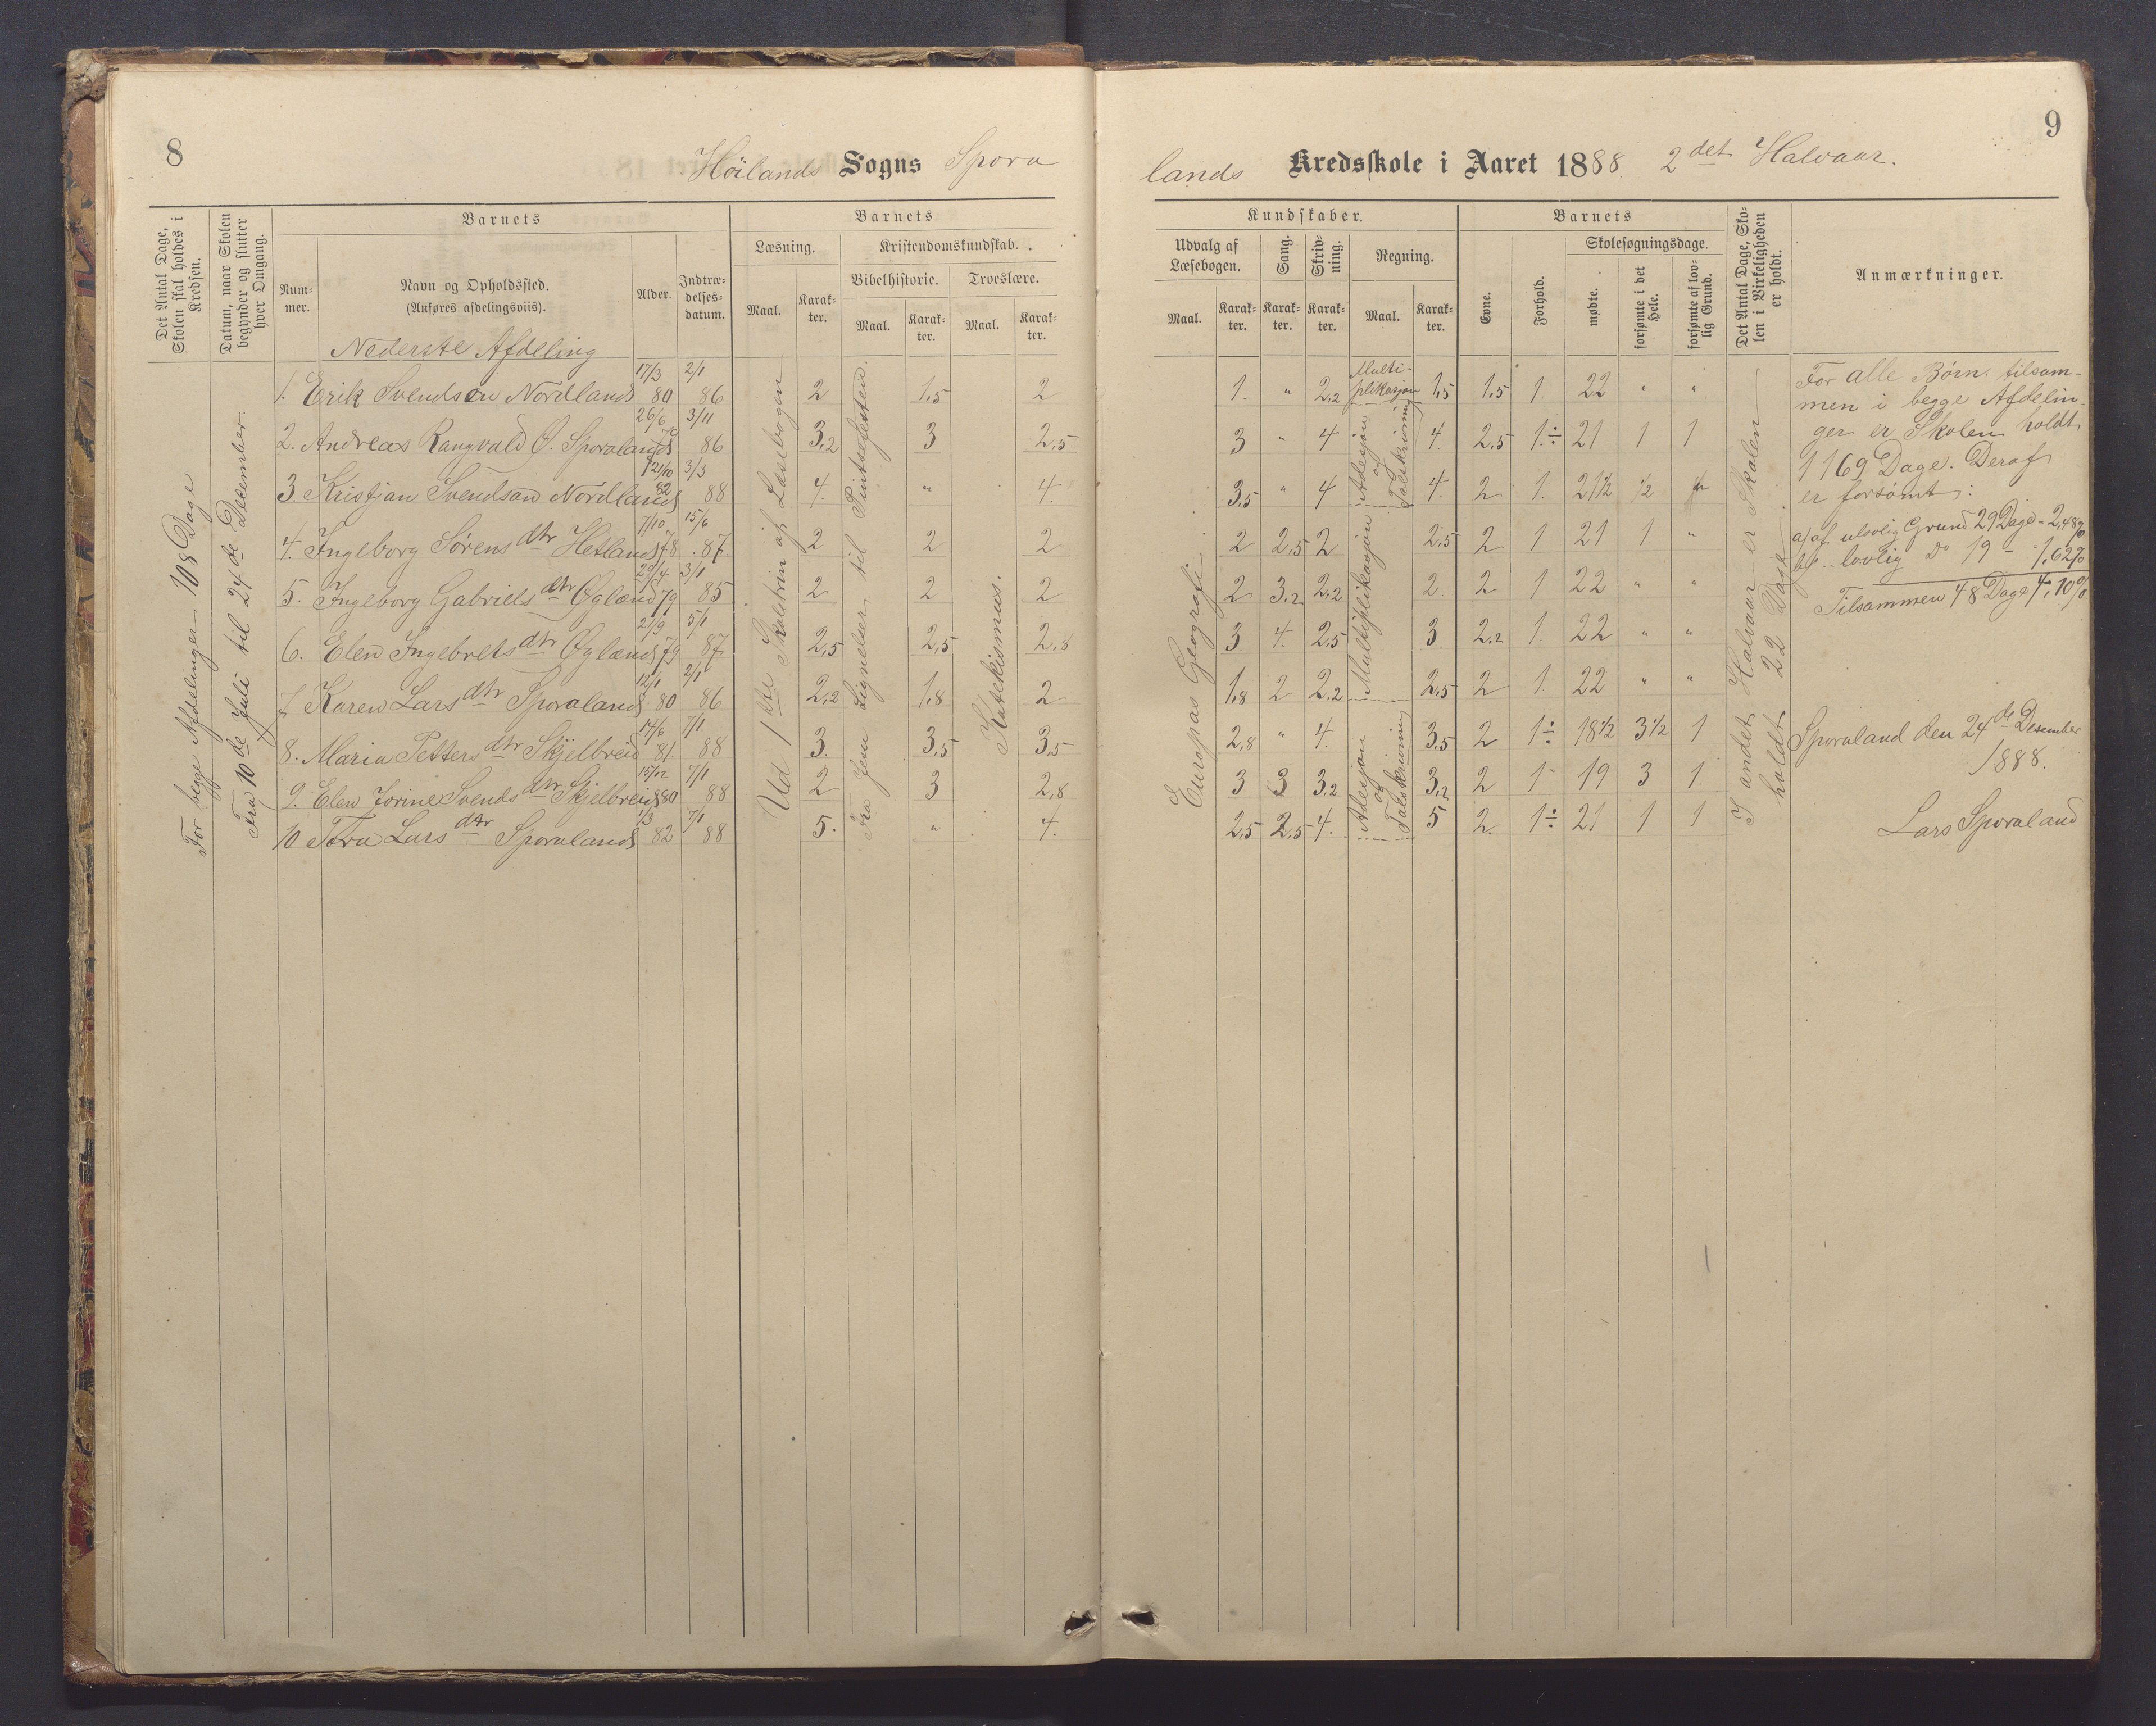 8
Höilands Sogns Spora
Det Antal Dage, Skolen skal holdes i Kredsen.
Datum, naar Skolen begynder og slutter hver Omgang.
Barnets
Num-mer.
Navn og Opholdssted.
(Anføres afdelingsviis).
Alder.
Indtræ-delses-datum.
Barnets
Læsning.
Kristendomskundskab.
Bibelhistorie.
Troeslære.
Maal.
Karak-ter.
Maal.
Karak-ter.
Maal.
Karak-ter.
For begge Afdelinger 108 Dage
Fra 10de Juli til 24de December.
Nederste Afdeling
1. Erik Svendsen Nordland 17/3 80 2/1 86 2 1,5 2
2. Andreas Rangvald O. Sporaland 26/6 3/11 86 3,2 3 2,5
3. Kristjan Svendsen Nordland 21/10 82 3/3 88 4. " 4.
4. Ingeborg Sørensdtr Hetland 7/10 78 15/6 87 2 2 2
5. Ingeborg Gabrielsdtr Øglænd 29/4 79 3/1 85 2 2 2
6. Elen Ingebretsdtr Øglænd 2/9 79 5/1 87 2,5 2,5 2,8
7. Karen Larsdtr Sporaland 12/1 80 2/1 86 2,2 1,8 2
8. Maria Pettersdtr Skjelbreid 14/6 81. 7/1 88 3. 3,5 3,5
9. Elen Jorine Svendsdtr Skjelbreid 15/12 80 7/1 88 2 3 2,8
10 Tora Larsdtr Sporaland 1/3 82 7/1 88 5. " 4.
Ud 1ste Skoletrin af Læsebogen
Fra Jesu Lignelser til Pintsefesten.
Katekismus.
9
lands Kredsskole i Aaret 1888. 2det Halvaar.
Kundskaber.
Udvalg af Læsebogen.
Sang.
Skriv-ning.
Regning.
Maal.
Karak-ter.
Karak-ter.
Karak-ter.
Maal.
Karak-ter.
Barnets
Evne.
Forhold.
Skolesøgningsdage.
mødte.
forsømte i det Hele.
forsømte af lov-lig Grund.
Det Antal Dage, Sko-len i Virkeligheden er holdt.
Anmærkninger.
Europas Geografi
1. " 2,2 Multi-plikasjon 1,5 1,5 1. 22 " "
3 " 4 Adisjon og Talskrivning 4. 2,5 1÷ 21 1 1
3,5 " 4 4. 2 1. 21½ ½
2 2,5 2 Multiplikasjon 2,5 2 1 21 1 "
2 3,2 2,2 2. 2 1 22 " "
3 4. 2,5 3 2,2 1. 22 " "
1,8 2 2,2 2,5 2 1 22 " "
2,8 " 4 Adisjon og Talskrivning 3,5 2 1÷ 18½ 3½ 1
3 3 3,2 3,2 2 1 19 3 1
2,5 2,5 4. 5 2. 1÷ 21 1 1
I andet Halvaar er Skolen
holdt 22 Dage.
For alle Börn tilsam-
men i begge Afdelin-
ger er Skolen holdt
1169 Dage. Deraf
er forsömt:
a) af ulovlig Grund 29 Dage = 2,48%
b) " lovlig Do 19 - = 1,62%
Tilsammen 48 Dage 4,10%
Sporaland den 24de Desember
1888.
Lars Sporaland